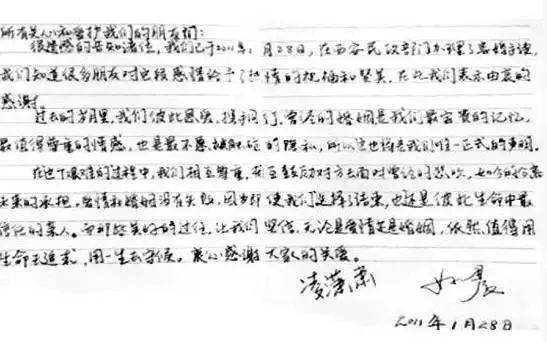 所有关心和爱护我们的朋友们:
很遗憾的告知诸位,我们已于2011年1月28日,在西安民政部门办理了离婚手续
我们知道很多朋友对这段感情给予了热情的祝福和赞美,在此我们表示由衷的
感谢。
过去的岁月里,我们彼此恩爱,携手同行,曾经的婚姻是我们最宝贵的记忆,
最值得尊重的情感,也是最不愿被触碰的隐私,所以这也将是我们唯一正式的声明。
在这个艰难的过程中,我们相互尊重,相互鼓励对方去面对曾经的悲欢,如今的分离
未来的承担。爱情和婚姻没有失败,因为即使我们选择了结束,也还是彼此生命中最
的亲人。而那些美好的过往,让我们坚信,无论是爱情还是婚姻,依然值得用
生命去追求,用一生去守候。衷心感谢大家的关爱。
凌潇肃 姚晨
2011年1月28日